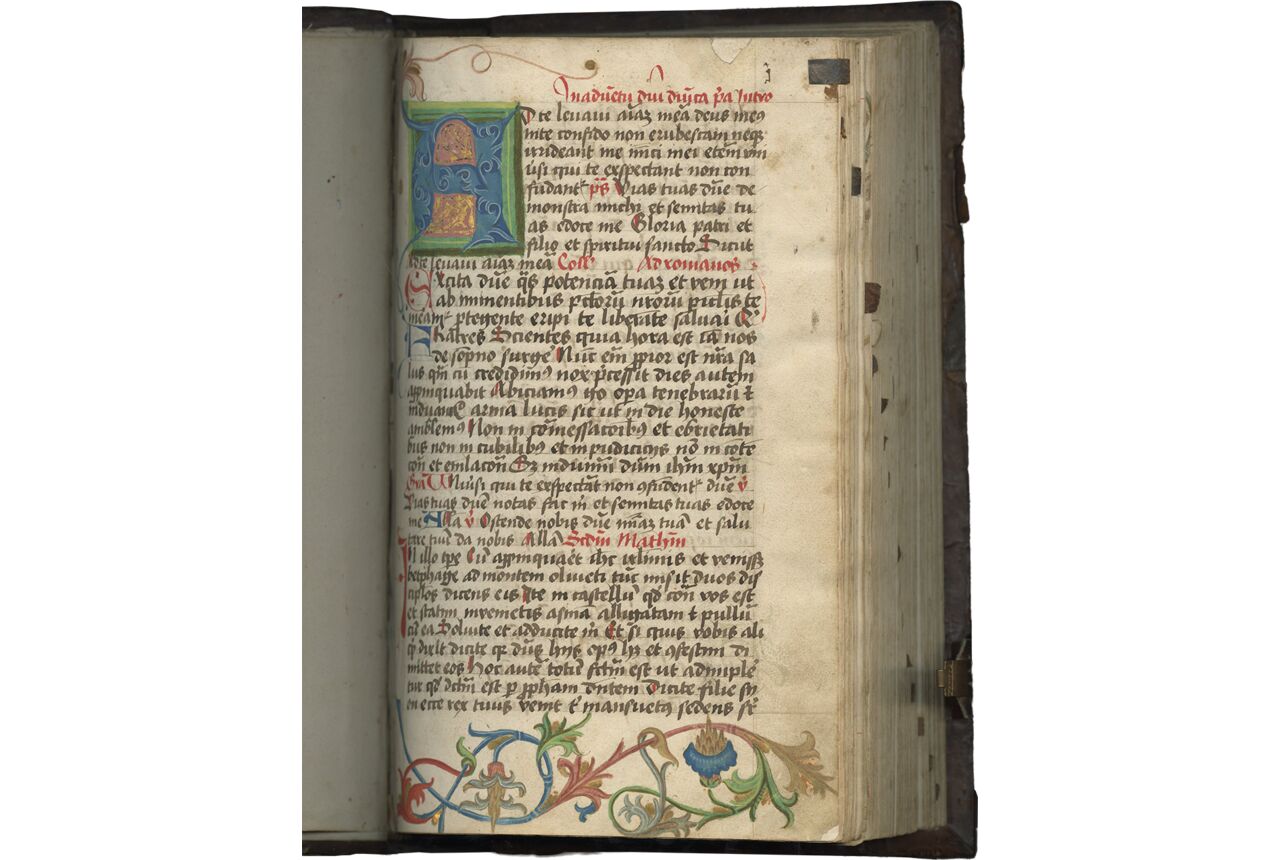 j
In adue͞tu dn͞i dn͞ica p͞a Intro
AD te leuaui aı͞aʒ mea͞ deus meꝰ
inte confido non erubescam neqꝫ
irrideant me i͞mici mei etem͞ vni
uersi qui te exspectant non con
fundant᷑ p͞s Vias tuas dn͞e de
monstra michi et semitas tu
as edoce me Gloria patri et
filio et spiritui sancto Sicut
Ad te leuaui aı͞aʒ mea͞ Coll᷑ Ad romanos
Excita dn͞e qs͞ potencia͞ tuaʒ et veni ut
ab iminentibus pc͞toru͞ nr͞oru͞ picl͞is te
meam᷑ ptegente eripi te liberate saluari
Fratres Scientes quia hora est ia͞ nos
de sompno surge᷑ Nu͞c em͞ ꝓpior est nr͞a sa
lus qm͞ cu͞ credidimꝰ nox pͨcessit dies autem
appinquabit Abiciamꝰ gͦ opa tenebraru͞ et
induam᷑ arma lucis sic ut in die honeste
ambulemꝰ Non in co͞messacoibꝰ et ebrietati
bus non in cubilibꝰ et inpudicicijs no͞ in co͞te
co͞n et emlaco͞n Sʒ induimi͞ dnu͞m ihm͞ xpm͞
Gra͞ Vniu͞si qui te exspecta͞t non ꝯfundent᷑ dn͞e v͞
Vias tuas dn͞e notas fac m͞ et semitas tuas edoce
me Alla v͞ Ostende nobis dn͞e mi͞aʒ tua͞ et salu
tare tuu͞ da nobis Alla͞ Scdm͞ Mathm͞
In illo tp͞e Cu͞ appinqua&#x0364;et ihc͞ ihl͞imis et venissꝫ
betphage ad montem oliueti tu͞c misit duos dis
cip͞los dicens eis Ite in castellu͞ qd͞ co͞n vos est
et statim inuenietis asina͞ alligatam et pullu͞
cu͞ ea Soluite et adducite m͞ Et si quis vobis ali
qͥ dixit͞ dicite qr᷑ dn͞s hijs opꝰ hʒ et ꝯfestim di
mittet eos Hoc aute͞ totu͞ fc͞m est ut adimple᷑
tur qd͞ dc͞m est p ꝓpham dn͞tem Dicite filie sy
on ecce rex tuus venit t᷑ mansuetꝰ sedens su᷑